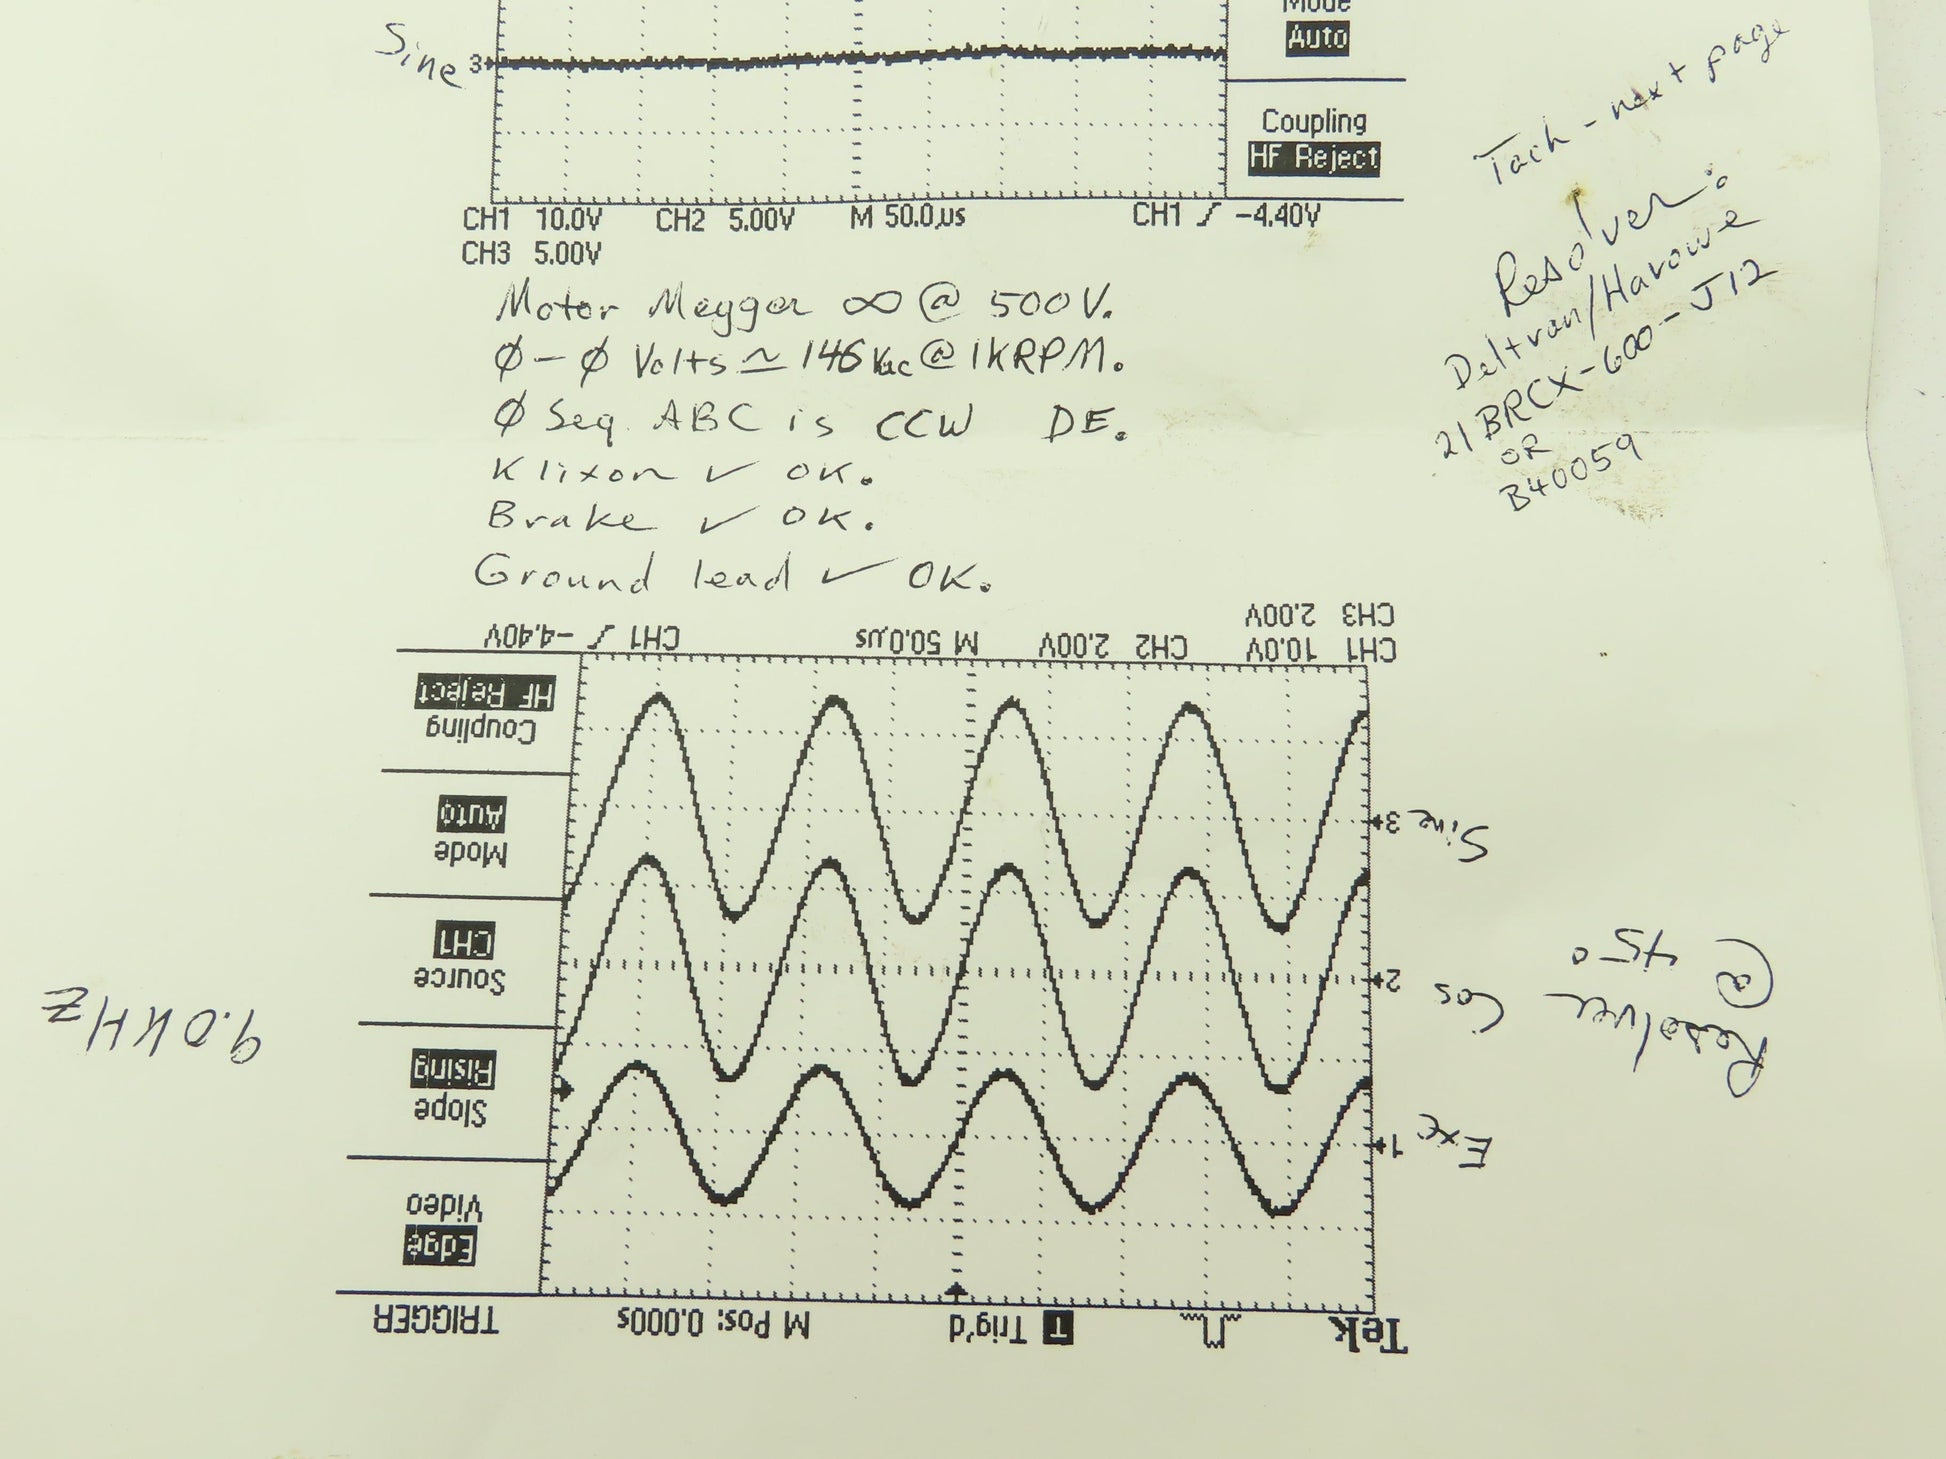 Mode
Auto
Sine 3
Coupling
HF Reject
CH1 10.0V CH2 5.00V M 50.0µs CH1 -4.40V
CH3 5.00V
Tach - next page
Resolver:
Deltran/Harowe
21BRCX-600-J12
OR
B40059
Motor Megger ∞ @ 500V.
Ø-Ø Volts ≃ 146 Vac @ 1KRPM.
Ø Seq. ABC is CCW DE.
Klixon ✓ OK.
Brake ✓ OK.
Ground lead ✓ OK.
Tek T Trig'd M Pos: 0.000s TRIGGER
Edge
Video
Exc 1
Slope
Rising
Resolver
@ 45°
9.0KHZ
Cos 2
Source
CH1
Sine 3
Mode
Auto
Coupling
HF Reject
CH1 10.0V CH2 2.00V M 50.0µs CH1 -4.40V
CH3 2.00V